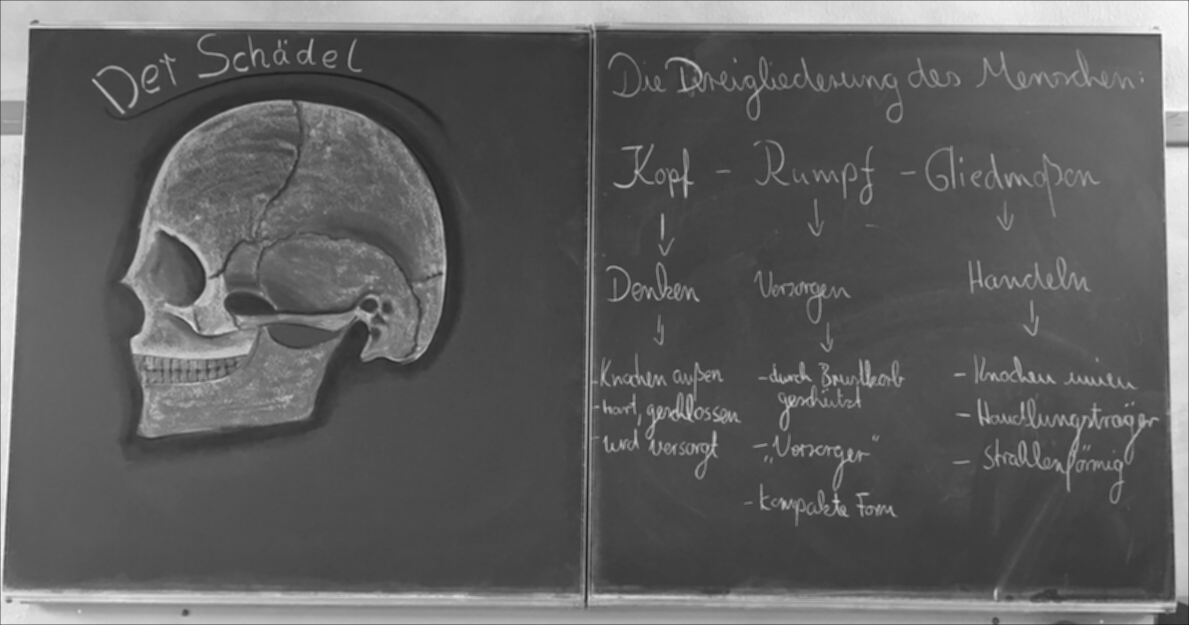 Der Schädel
Die Dreigliederung des Menschen:
Kopf - Rumpf - Gliedmaßen
↓ ↓ ↓
Denken Versorgen Handeln
↓ ↓ ↓
- Knochen außen
- hart, geschlossen
- wird versorgt
- durch Brustkorb
geschützt
- „Versorger“
- kompakte Form
- Knochen innen
- Handlungsträger
- strahlenförmig